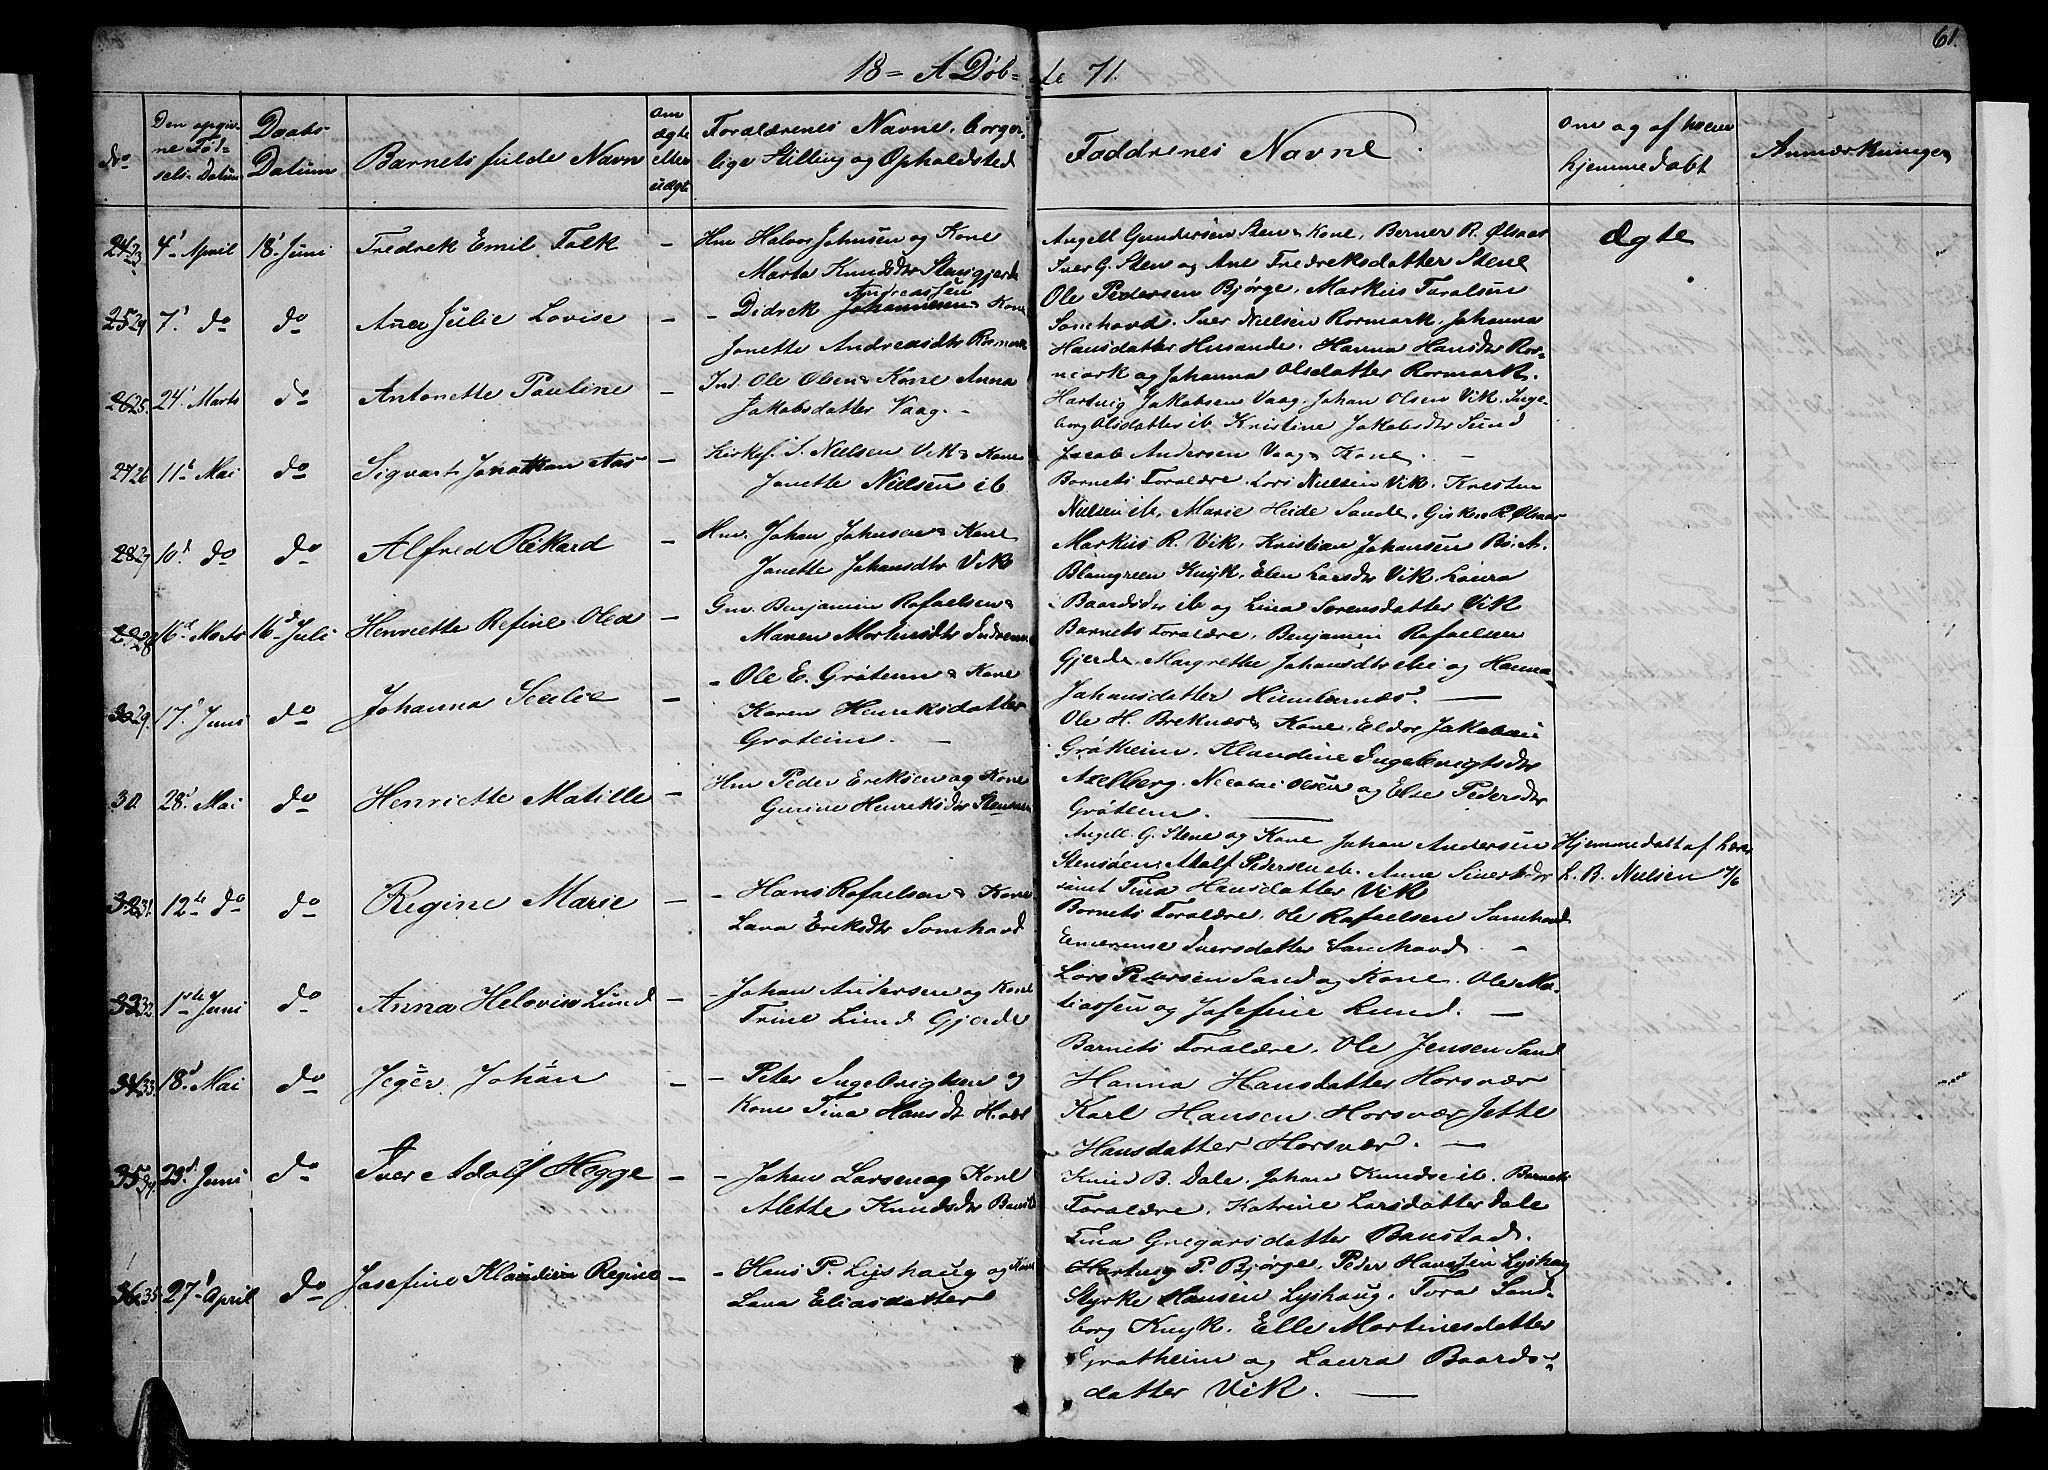 61.
18 = A Døb= te 71.
No
Den opgiv
ne Fød=
sels- Datum
Daabs-
Datum
Barnets fulde Navn
Om
ægte
eller
uægte
Forældrenes Navne, borger
lige Stilling og Opholdsted
Faddrenes Navne.
Om og af hvem
hjemmedøbt
Anmærkninger
24 23 4' April 18' Juni Fredrek Emil Falk - Hm Halvor Johnsen og Kone
Marta Knudsdtr Stensgjerde
Angell Gundersen Sten & Kone, Berner R. Ølsaas
Iver G. Sten og Ane Fredreksdatter Stene
Ægte
25 24 7' do do Ana Julie Lovise - - Didrek Johannesen & Kone
Andreassen
Jonette Andreasdtr Rormark
Ole Pedersen Bjørge, Markus Toralsen
Somhovd. Iver Nielsen Rormark. Johanna
Hansdatter Husande. Hanna Hansdtr Ror-
mark og Johanna Olsdatter Rormark.
26 25. 24' Marts do Antonette Pauline - Ind. Ole Olsen & Kone Anna
Jakobsdatter Vaag. -
Hartvig Jakobsen Vaag. Johan Olsen Vik. Inge-
borg Olsdatter ib Kristine Jakobsdtr Sund
Jacob Andersen Vaag & Kone. -
27 26 11te Mai do Sigvart Jonathan Aas - Kirkes. S. Nielsen Vik & Kone
Jonette Nielsen ib
Barnets Foraldre. Lors Nielsen Vik. Kristen
Nielsen ib. Marie Heide Sande. Gisken R. Ølsaas
28 27 10' do do Alfred Rikard - Hm. Johan Johnsen & Kone
Jonette Johansdtr Vik
Markus R. Vik. Kristian Johansen Bø. A.
Blomgreen Knyk. Elen Larsdtr Vik. Laura
Baardsdtr ib og Lina Sorensdatter Vik
29 28 16d Marts 16d Juli Henriette Refine Olea - Gm. Benjamin Rafaelsen &
Maren Mortensdtr
Barnets Foraldre, Benjamin Rafaelsen
Gjerde. Margrethe Johansdtr ibi og Hanna
Johansdatter Humlernæs. -
30 29. 17' Juni do Johanna - - Ole E. Grøteim & Kone
Karen Henreksdatter
Groteim. -
Ole H. Breknæs & Kone. Eldor Jakobsen
Grøtheim. Klaudine Ingebregtsdtr
Axelberg. Nicolai Olsen og Else Pedersdtr
Grøteim. -
30. 28' Mai do Henriette Matille - Hm Peder Eriksen og Kone
Gurine Henreksdtr
Angell. G. Stene og Kone Johan Andersen
Stensøen. Adolf Pedersen ib. Anne Siversdtr
samt Tina Hansdatter Vik
Hjemmedøbt af Lærer
L. B. Nielsen 7/6
32 31. 12te do do Regine Marie - - Hans Rafaelsen & Kone
Lava Eriksdtr Somhovd
Barnets Foraldre. Ole Rafaelsen Somhovd
Emerense Iversdatter Somhovd. -
33 32 1ste Juni do Anna Helovise Lund - - Johan Andersen og Kone
Trine Lund Gjerde
Lors Pedersen Sand og Kone. Ole Ma-
tiassen og Josefine Lund. -
34 33. 18' Mai do Jeger Johan - - Peter Ingebrigtsen og
Kone Tina Hansdtr
Barnets Foraldre. Ole Jensen Sand
Hanna Hansdatter Horsvær
Karl Hansen Horsvær Jette
Hansdatter Horsvær. -
35 34. 23' Juni do Iver Adolf Hegge - - Johan Larsen og Kone
Alette Knudsdtr
Knud B. Dale. Johan Knudsen ib. Barnets
Foraldre. Katrine Larsdatter Dale
Tina Gregarsdatter Baustad.
36 35. 27' April do Josefine Klaudine Regine - - Hans P. Lyshaug og Kone
Lava Eliasdatter
Hartvig P. Bjørge. Peder Hansen Lyshaug
Styrke Hansen Lyshaug. Tora Sand-
borg Knyk. Elle Martinesdatter
Grotheim og Laura Baards-
datter Vik. -